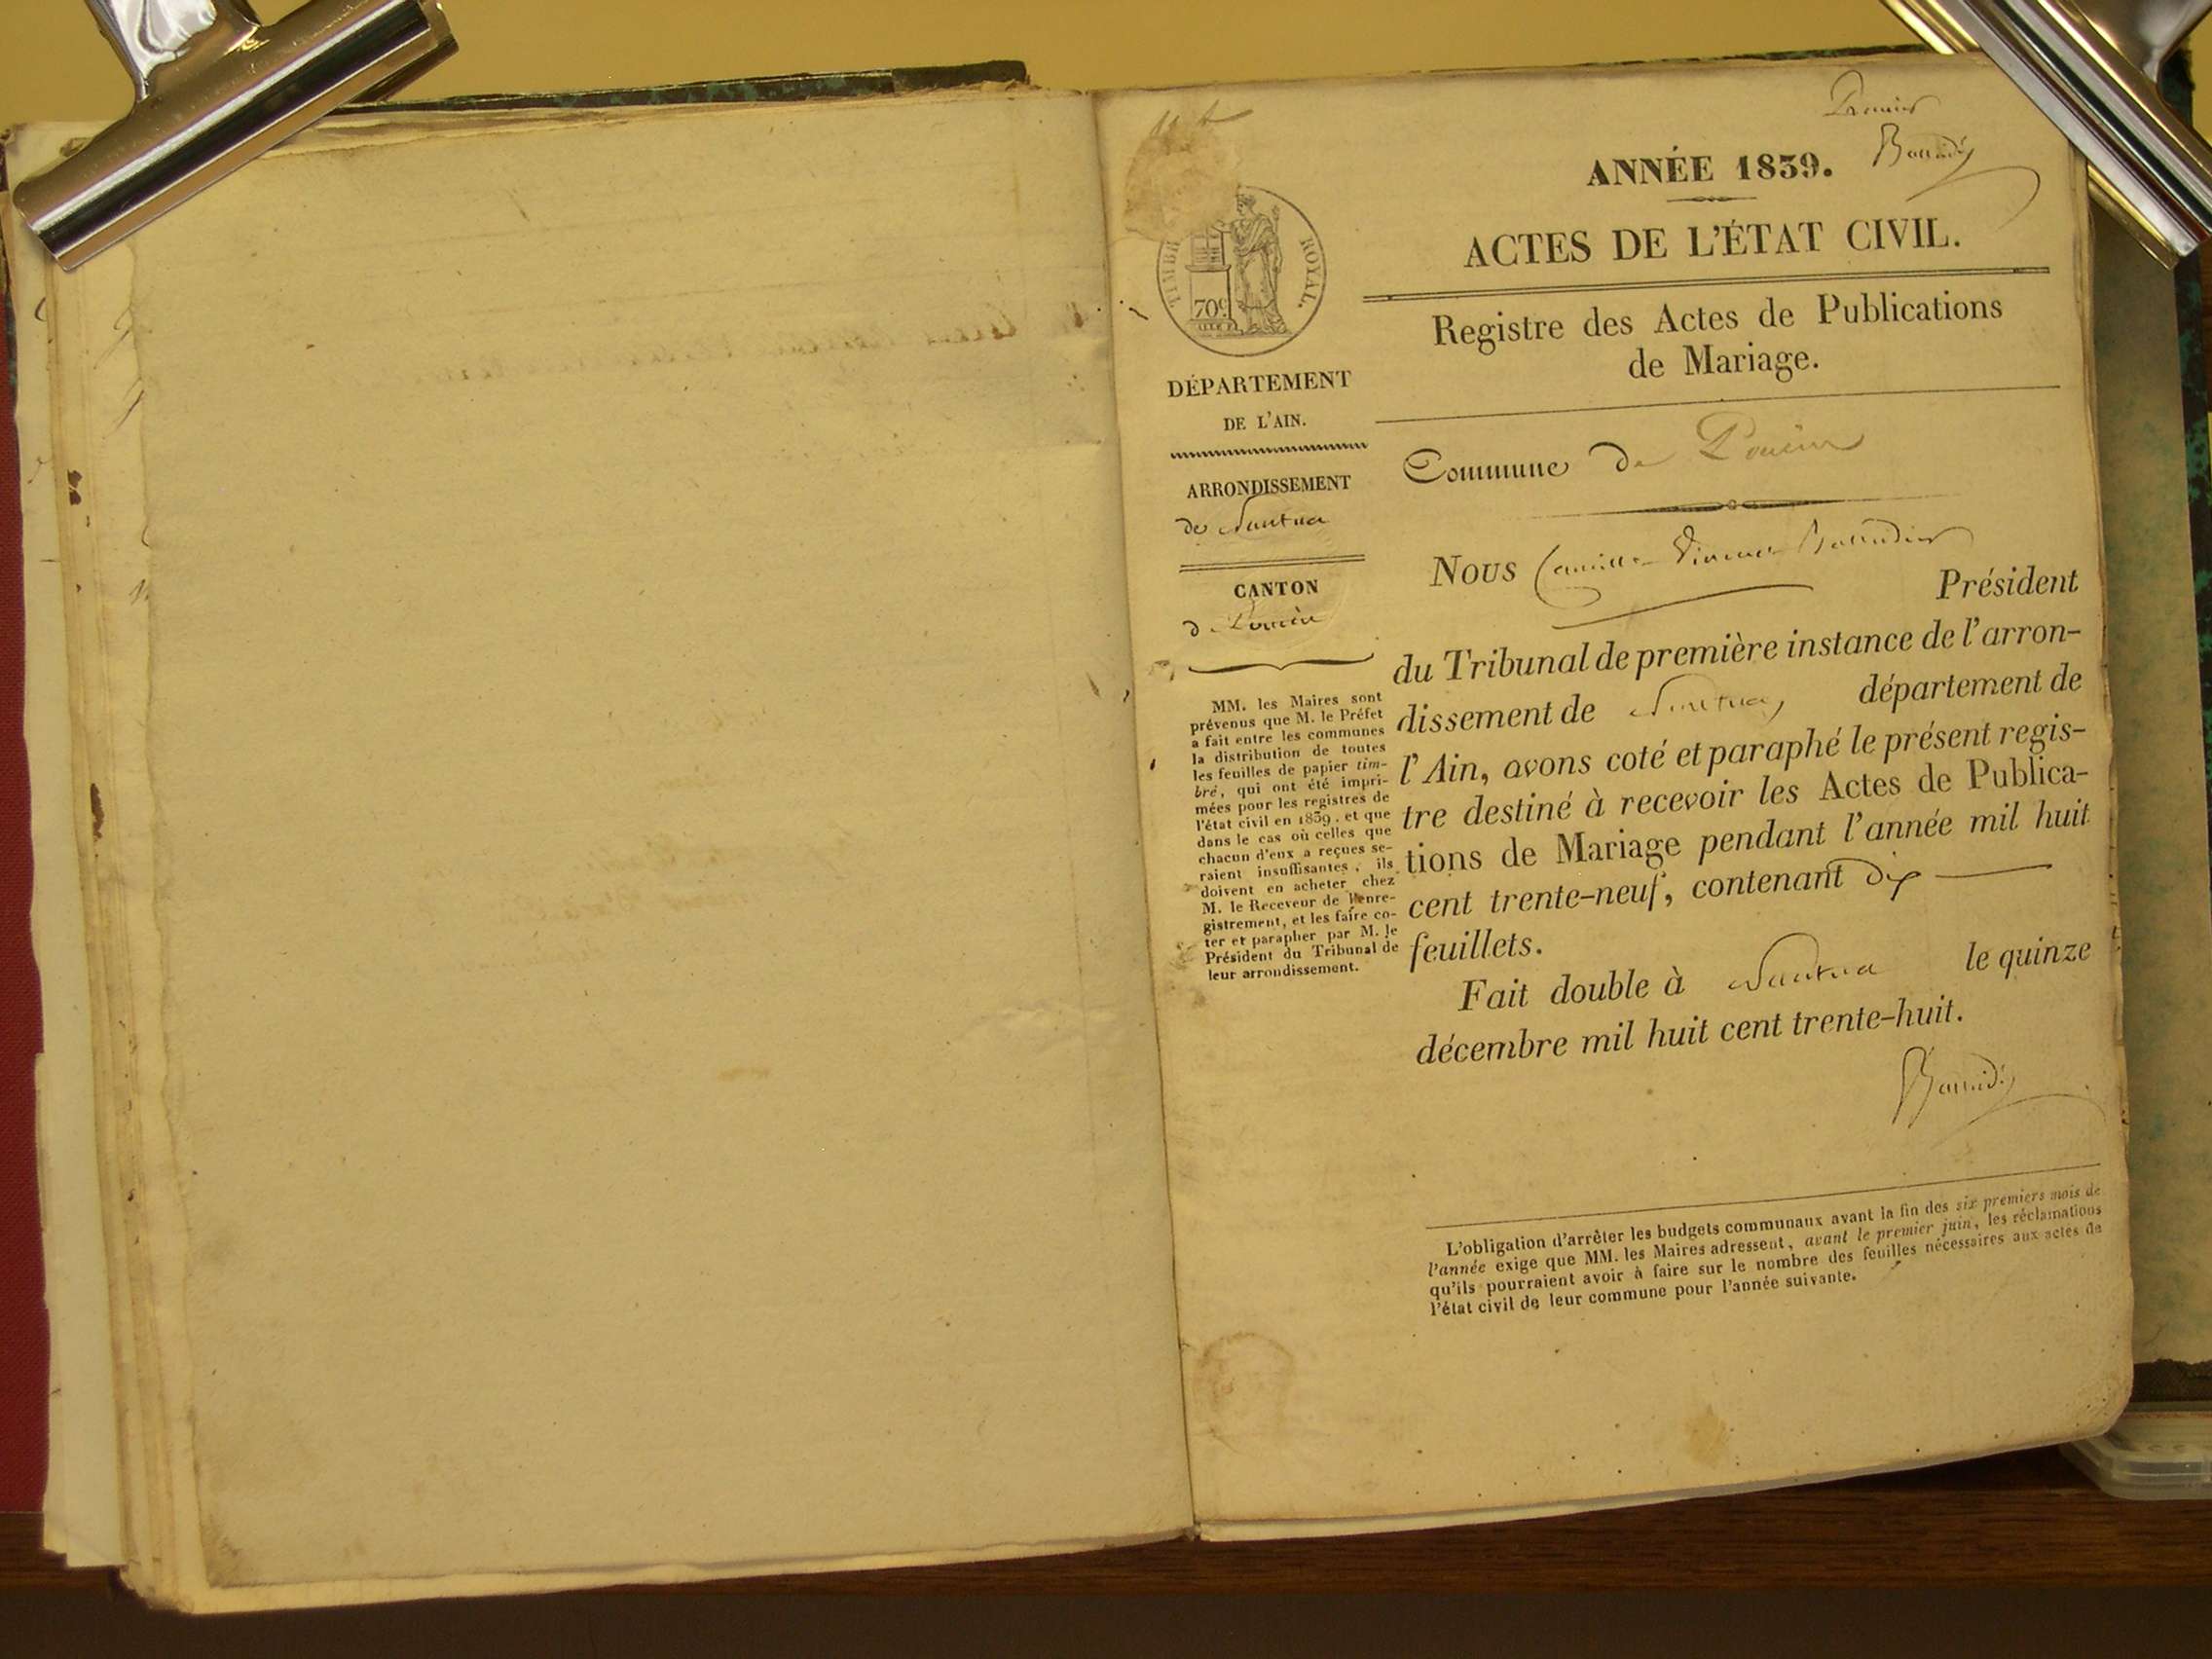 Premier
ANNÉE 1839.
ACTES DE L'ÉTAT CIVIL.
Registre des Actes de Publications
de Mariage.
TIMBRE ROYAL.
70c
DÉPARTEMENT
DE L'AIN.
ARRONDISSEMENT
de Nantua
CANTON
de Poncin
MM. les Maires sont
prévenus que M. le Préfet
a fait entre les communes
la distribution de toutes
les feuilles de papier tim-
bré, qui ont été impri-
mées pour les registres de
l'état civil en 1839, et que
dans le cas où celles que
chacun d'eux a reçues se-
raient insuffisantes, ils
doivent en acheter chez
M. le Receveur de l'enre-
gistrement, et les faire co-
ter et parapher par M. le
Président du Tribunal de
leur arrondissement.
Commune de Poncin
Nous Camille Vincent
Président
du Tribunal de première instance de l'arron-
dissement de Nantua, département de
l'Ain, avons coté et paraphé le présent regis-
tre destiné à recevoir les Actes de Publica-
tions de Mariage pendant l'année mil huit
cent trente-neuf, contenant dix
feuillets.
Fait double à Nantua le quinze
décembre mil huit cent trente-huit.
L'obligation d'arrêter les budgets communaux avant la fin des six premiers mois de
l'année exige que MM. les Maires adressent, avant le premier juin, les réclamations
qu'ils pourraient avoir à faire sur le nombre des feuilles nécessaires aux actes de
l'état civil de leur commune pour l'année suivante.